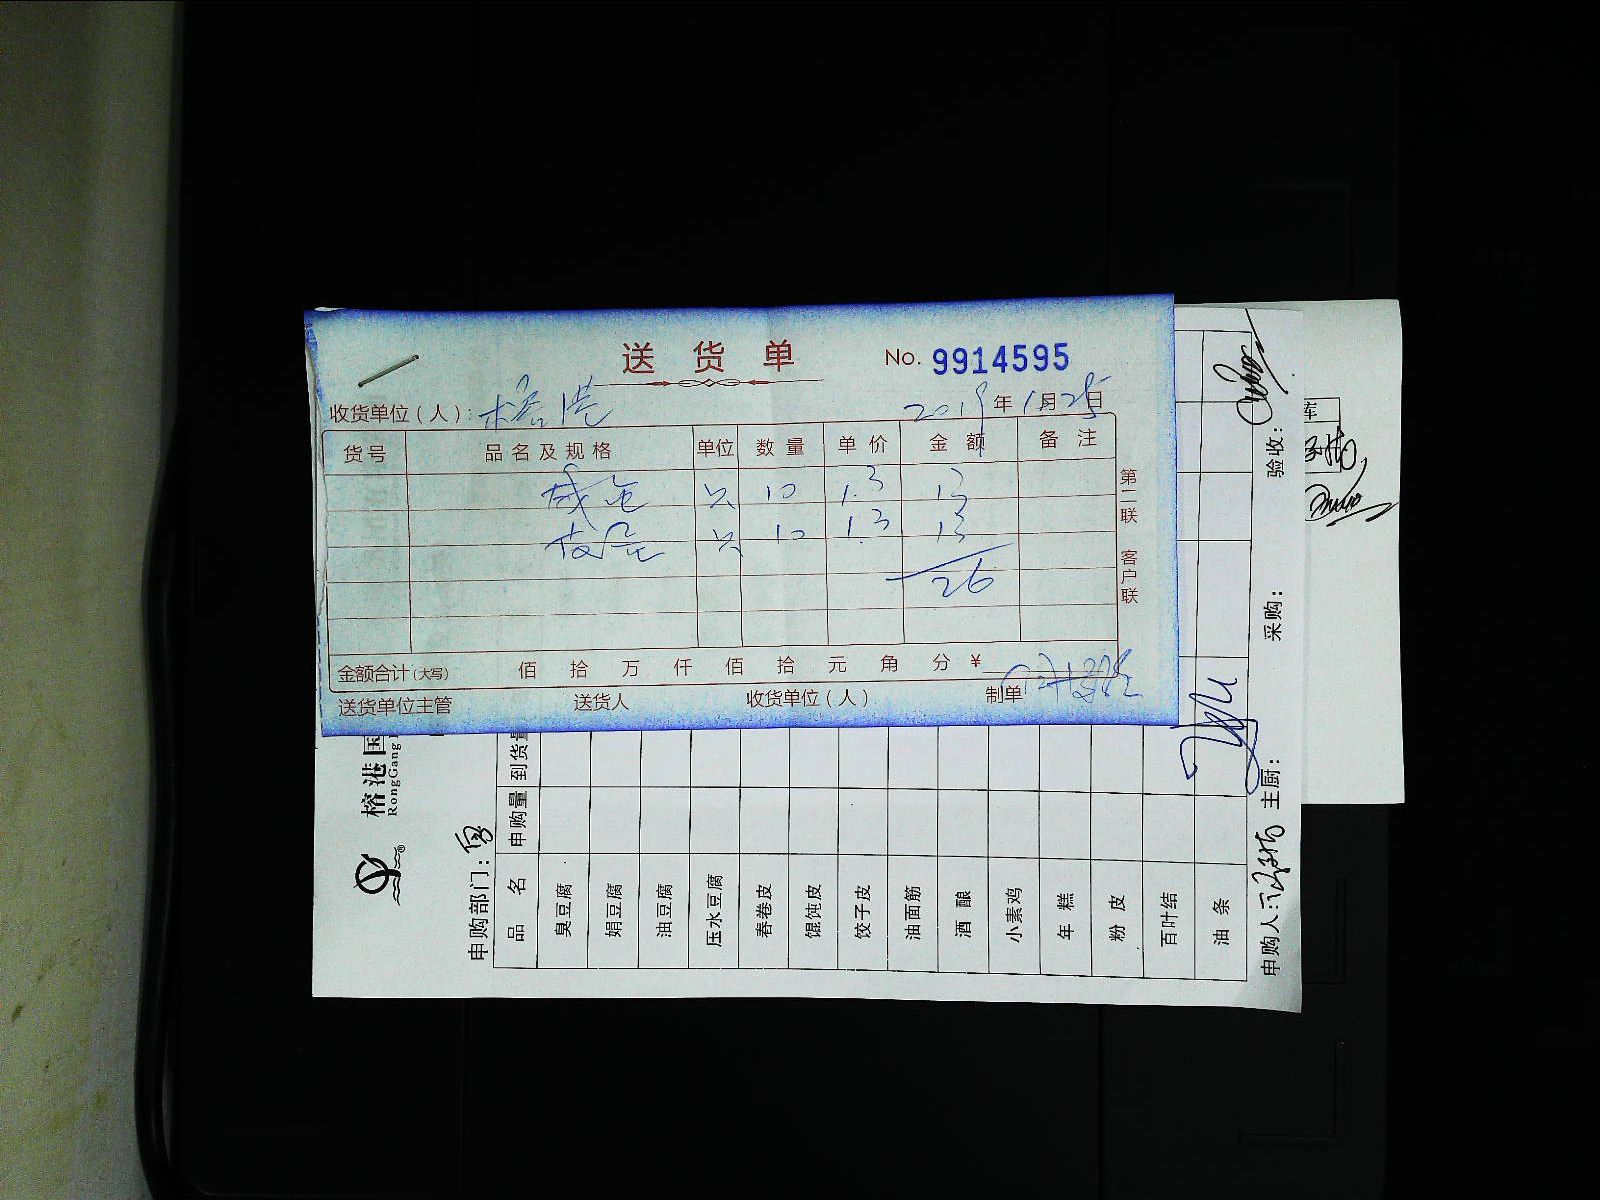 送 货 单
No. 9914595
收货单位（人）: 榕港
2019年1月25日
货号 品名及规格 单位 数量 单价 金额 备注
咸蛋 只 10 1.3 13
皮蛋 只 10 1.3 13
26
金额合计(大写) 佰 拾 万 仟 佰 拾 元 角 分 ¥
送货单位主管 送货人 收货单位（人） 制单
第二联 客户联
榕港国
RongGang
申购部门:
品 名 申购量 到货量
臭豆腐
娟豆腐
油豆腐
压水豆腐
春卷皮
馄饨皮
饺子皮
油面筋
酒 酿
小素鸡
年 糕
粉 皮
百叶结
油 条
申购人: 主厨: 采购: 验收:
库